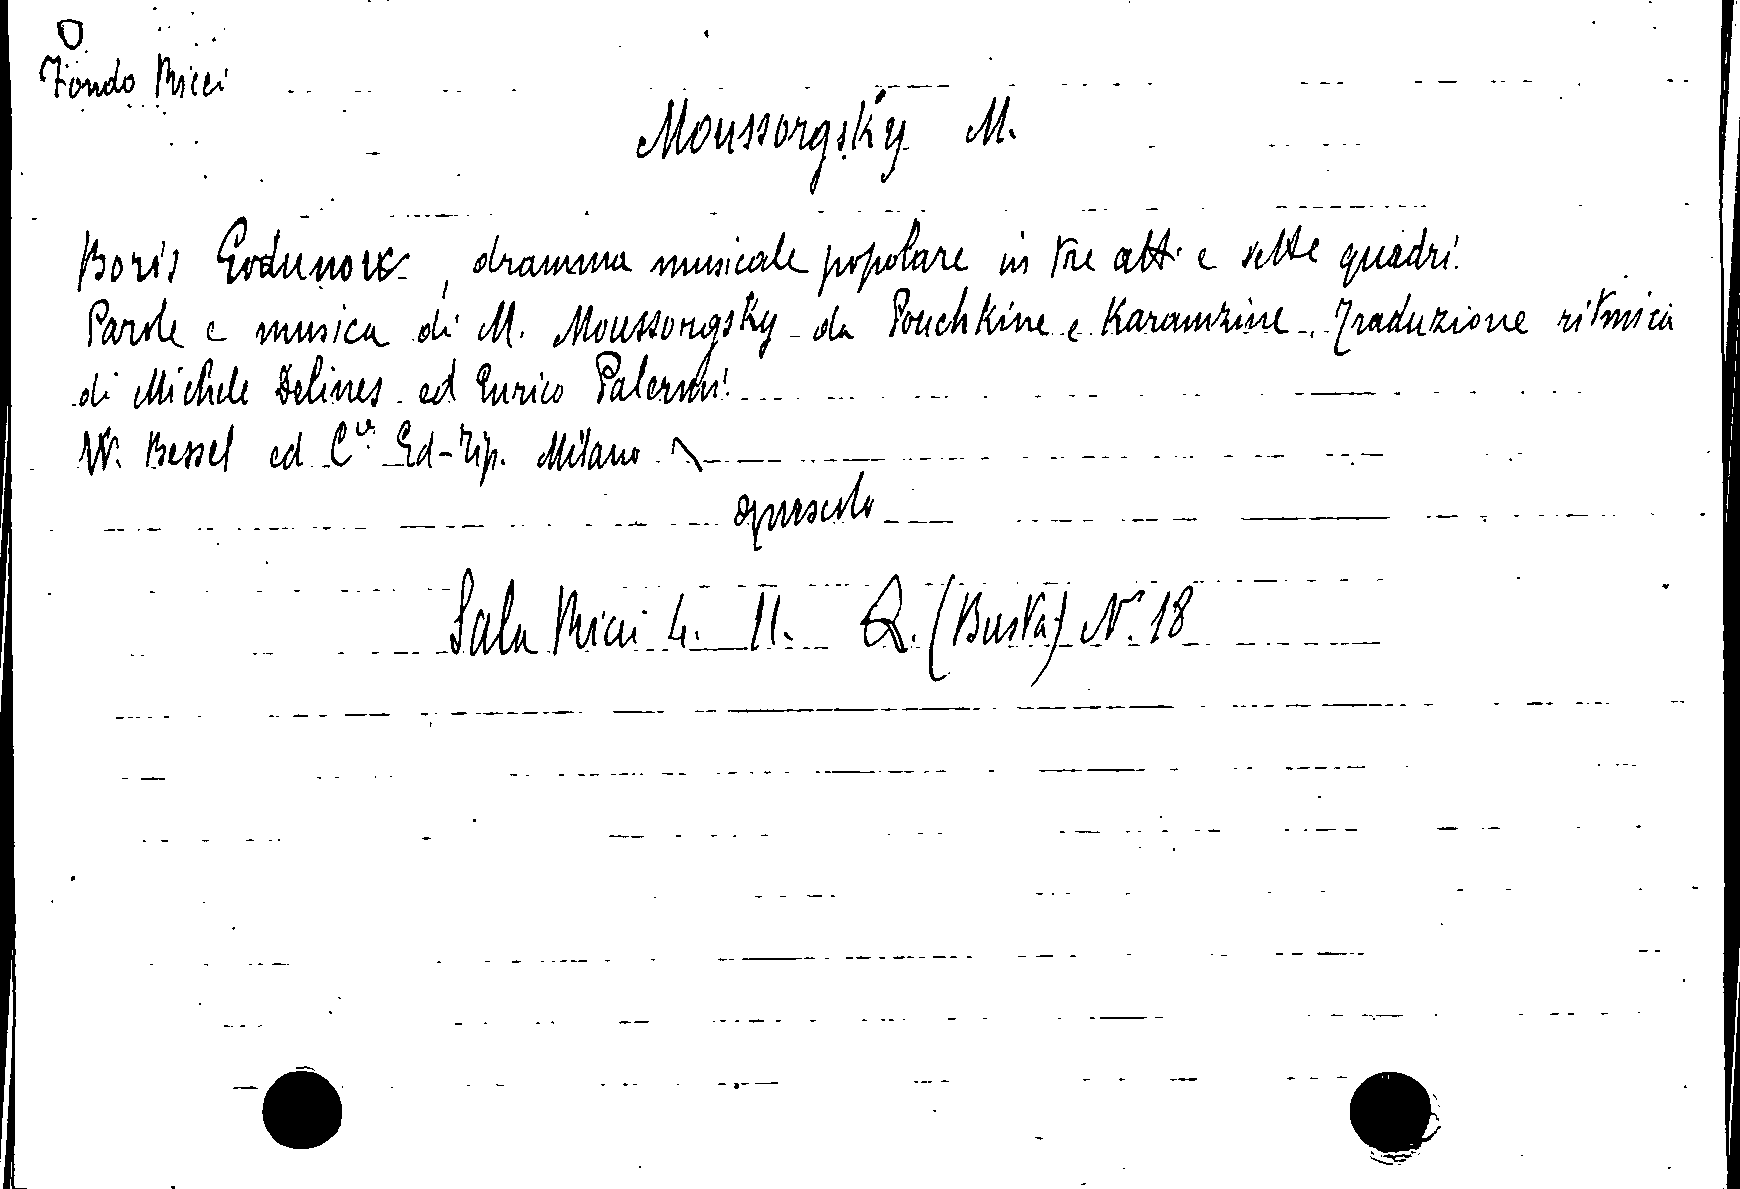 Fondo Ricci
Moussorgsky M.
Boris Godunow, dramma musicale popolare in tre atti e sette quadri.
Parole e musica di M. Moussorgsky da Pouchkine e Karamzine. Traduzione ritmica
di Michele Delines ed Enrico Palermi.
W. Bessel ed C.ie Ed-Tip. Milano
opuscolo
Sala Ricci 4. 11. Q. (Busta) N. 18